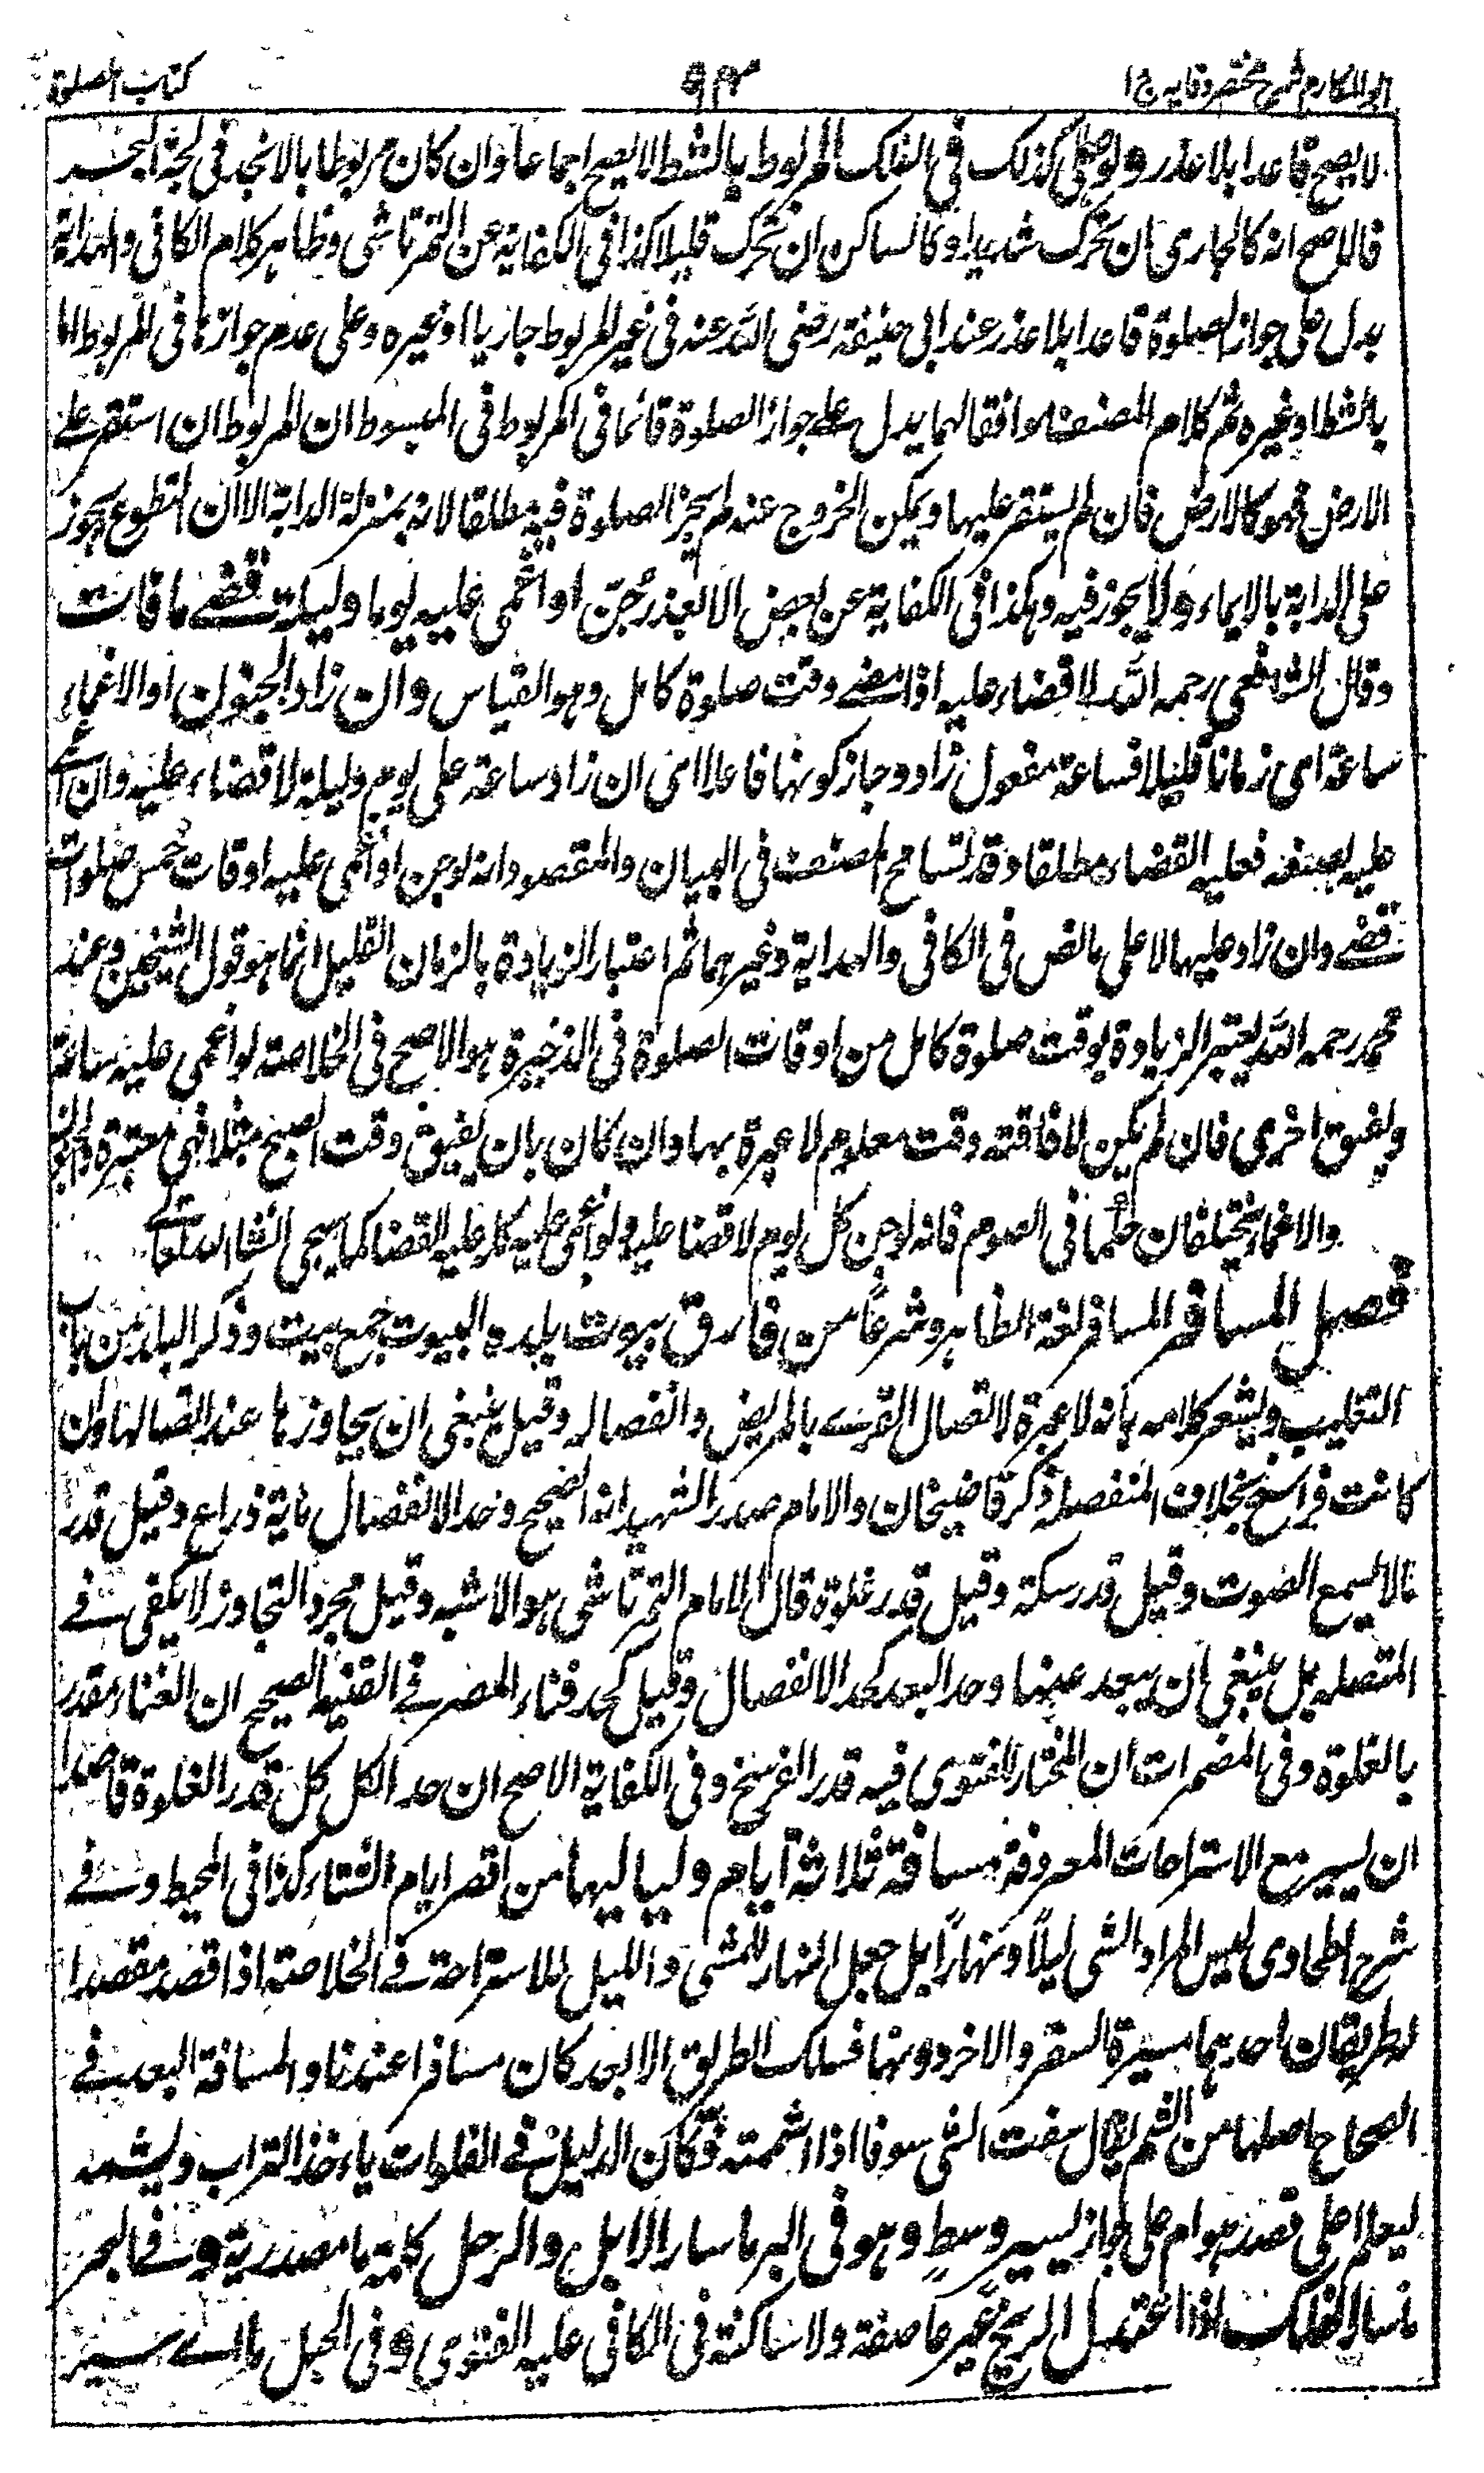 ابو المكارم شرح مختصر وقايه ج ١
كتاب الصلوة
لا يصح قاعدا بلا عذر ولو صلى كذلك فى الفلك المربوط بالشط لا يصح اجماعا وان كان مربوطا بالانجر فى لجة البحر
فالاصح انه كالجارى ان تحرك شديدا وكالساكن ان تحرك قليلا كذا فى الكفاية عن التمرتاشى وظاهر كلام الكافى والهداية
يدل على جواز الصلوة قاعدا بلا عذر عند ابى حنيفة رضى الله عنه فى غير المربوط جاريا او غيره وعلى عدم جوازها فى المربوط اما
بالشط او غيره ثم كلام المصنف موافقا لهما يدل على جواز الصلوة قائما فى المربوط فى المبسوط ان المربوط ان استقر على
الارض فهو كالارض فان لم يستقر عليها ويمكن الخروج عنه لم يجز الصلوة فيه مطلقا لانه بمنزلة الدابة الا ان التطوع يجوز
على الدابة بالايماء ولا يجوز فيه وهكذا فى الكفاية عن بعض الا بعذر جُنّ او اغمى عليه يوما وليلة قضے ما فات
وقال الشافعى رحمه الله لا قضاء عليه اذا مضے وقت صلوة كامل وهو القياس وان زاد الجنون او الاغماء
ساعة اى زمانا قليلا فساعة مفعول زاد وجاز كونها فاعلا اى ان زاد ساعة على يوم وليلة لا قضاء عليه وان اغمے
عليه بصنعه فعليه القضاء مطلقا وقد تسامح المصنف فى البيان والمقصود انه لو جن او اغمى عليه اوقات خمس صلوات
قضے وان زاد عليها لا على ما نص فى الكافى والهداية وغيرهما ثم اعتبار الزيادة بالزمان القليل انما هو قول الشيخين وعند
محمد رحمه الله يعتبر الزيادة بوقت صلوة كامل من اوقات الصلوة فى الذخيرة هو الاصح فى الخلاصة لو اغمى عليه ساعة
ويفيق اخرى فان لم يكن لافاقته وقت معلوم لا عبرة بها وان كان بان يفيق وقت الصبح مثلا فهى معتبرة والجنون
والاغماء يختلفان حكما فى الصوم فانه لو جن كل يوم لا قضا عليه ولو اغمى عليه كل عليه القضا كما يجى انشاء الله تعالے
فصل المسافر المسافر لغة الظاهر وشرعًا من فارق بيوت بلده البيوت جمع بيت وذكر البلد من باب
التغليب ويشعر كلامه بانه لا عبرة لاتصال القرے بالربض وانفصاله وقيل ينبغى ان يجاوزها عند اتصالها وان
كانت فراسخ بخلاف المنفصلة ذكر قاضيخان والامام صدر الشهيد انه الصحيح وحد الانفصال ماية ذراع وقيل قدر
ما لا يسمع الصوت وقيل قدر سكة وقيل قدر غلوة قال الامام التمرتاشى هو الاشبه وقيل مجرد التجاوز لا يكفى فے
المتصلة بل ينبغى ان يبعد عنها وحد البعد كحد الانفصال وقيل كحد فناء المصر فے القنية الصحيح ان الفناء مقدر
بالغلوة وفى المضمرات ان المختار للفتوى فيه قدر الفرسخ وفى الكفاية الاصح ان حد الكل كل قدر الغلوة قاصدا
ان يسير مع الاستراحات المعروفة مسافة ثلاثة ايام ولياليها من اقصر ايام الشتاء كذا فى المحيط وفے
شرح الطحاوى ليس المراد المشى ليلًا ونهارًا بل جعل النهار للمشى والليل للاستراحة فے الخلاصة اذا قصد مقصدا
لطريقان احدهما مسيرة السفر والاخر دونها فسلك الطريق الابعد كان مسافرا عندنا والمسافة البعد فے
الصحاح اصلها من الشم يقال سفت الشى سوفا اذا اشممته فكان الدليل فے الفلوات ياءخذ التراب ويشمه
ليعلم اعلى قصد هو ام على جواز بسير وسطٍ وهو فى البر ما سار الابل والرجل كلمة ما مصدرية وفے البحر
ما سار الفلك اذا اعتدل الريح غير عاصفة ولا ساكنة فى الكافى عليه الفتوى وفى الجبل ما اے سير